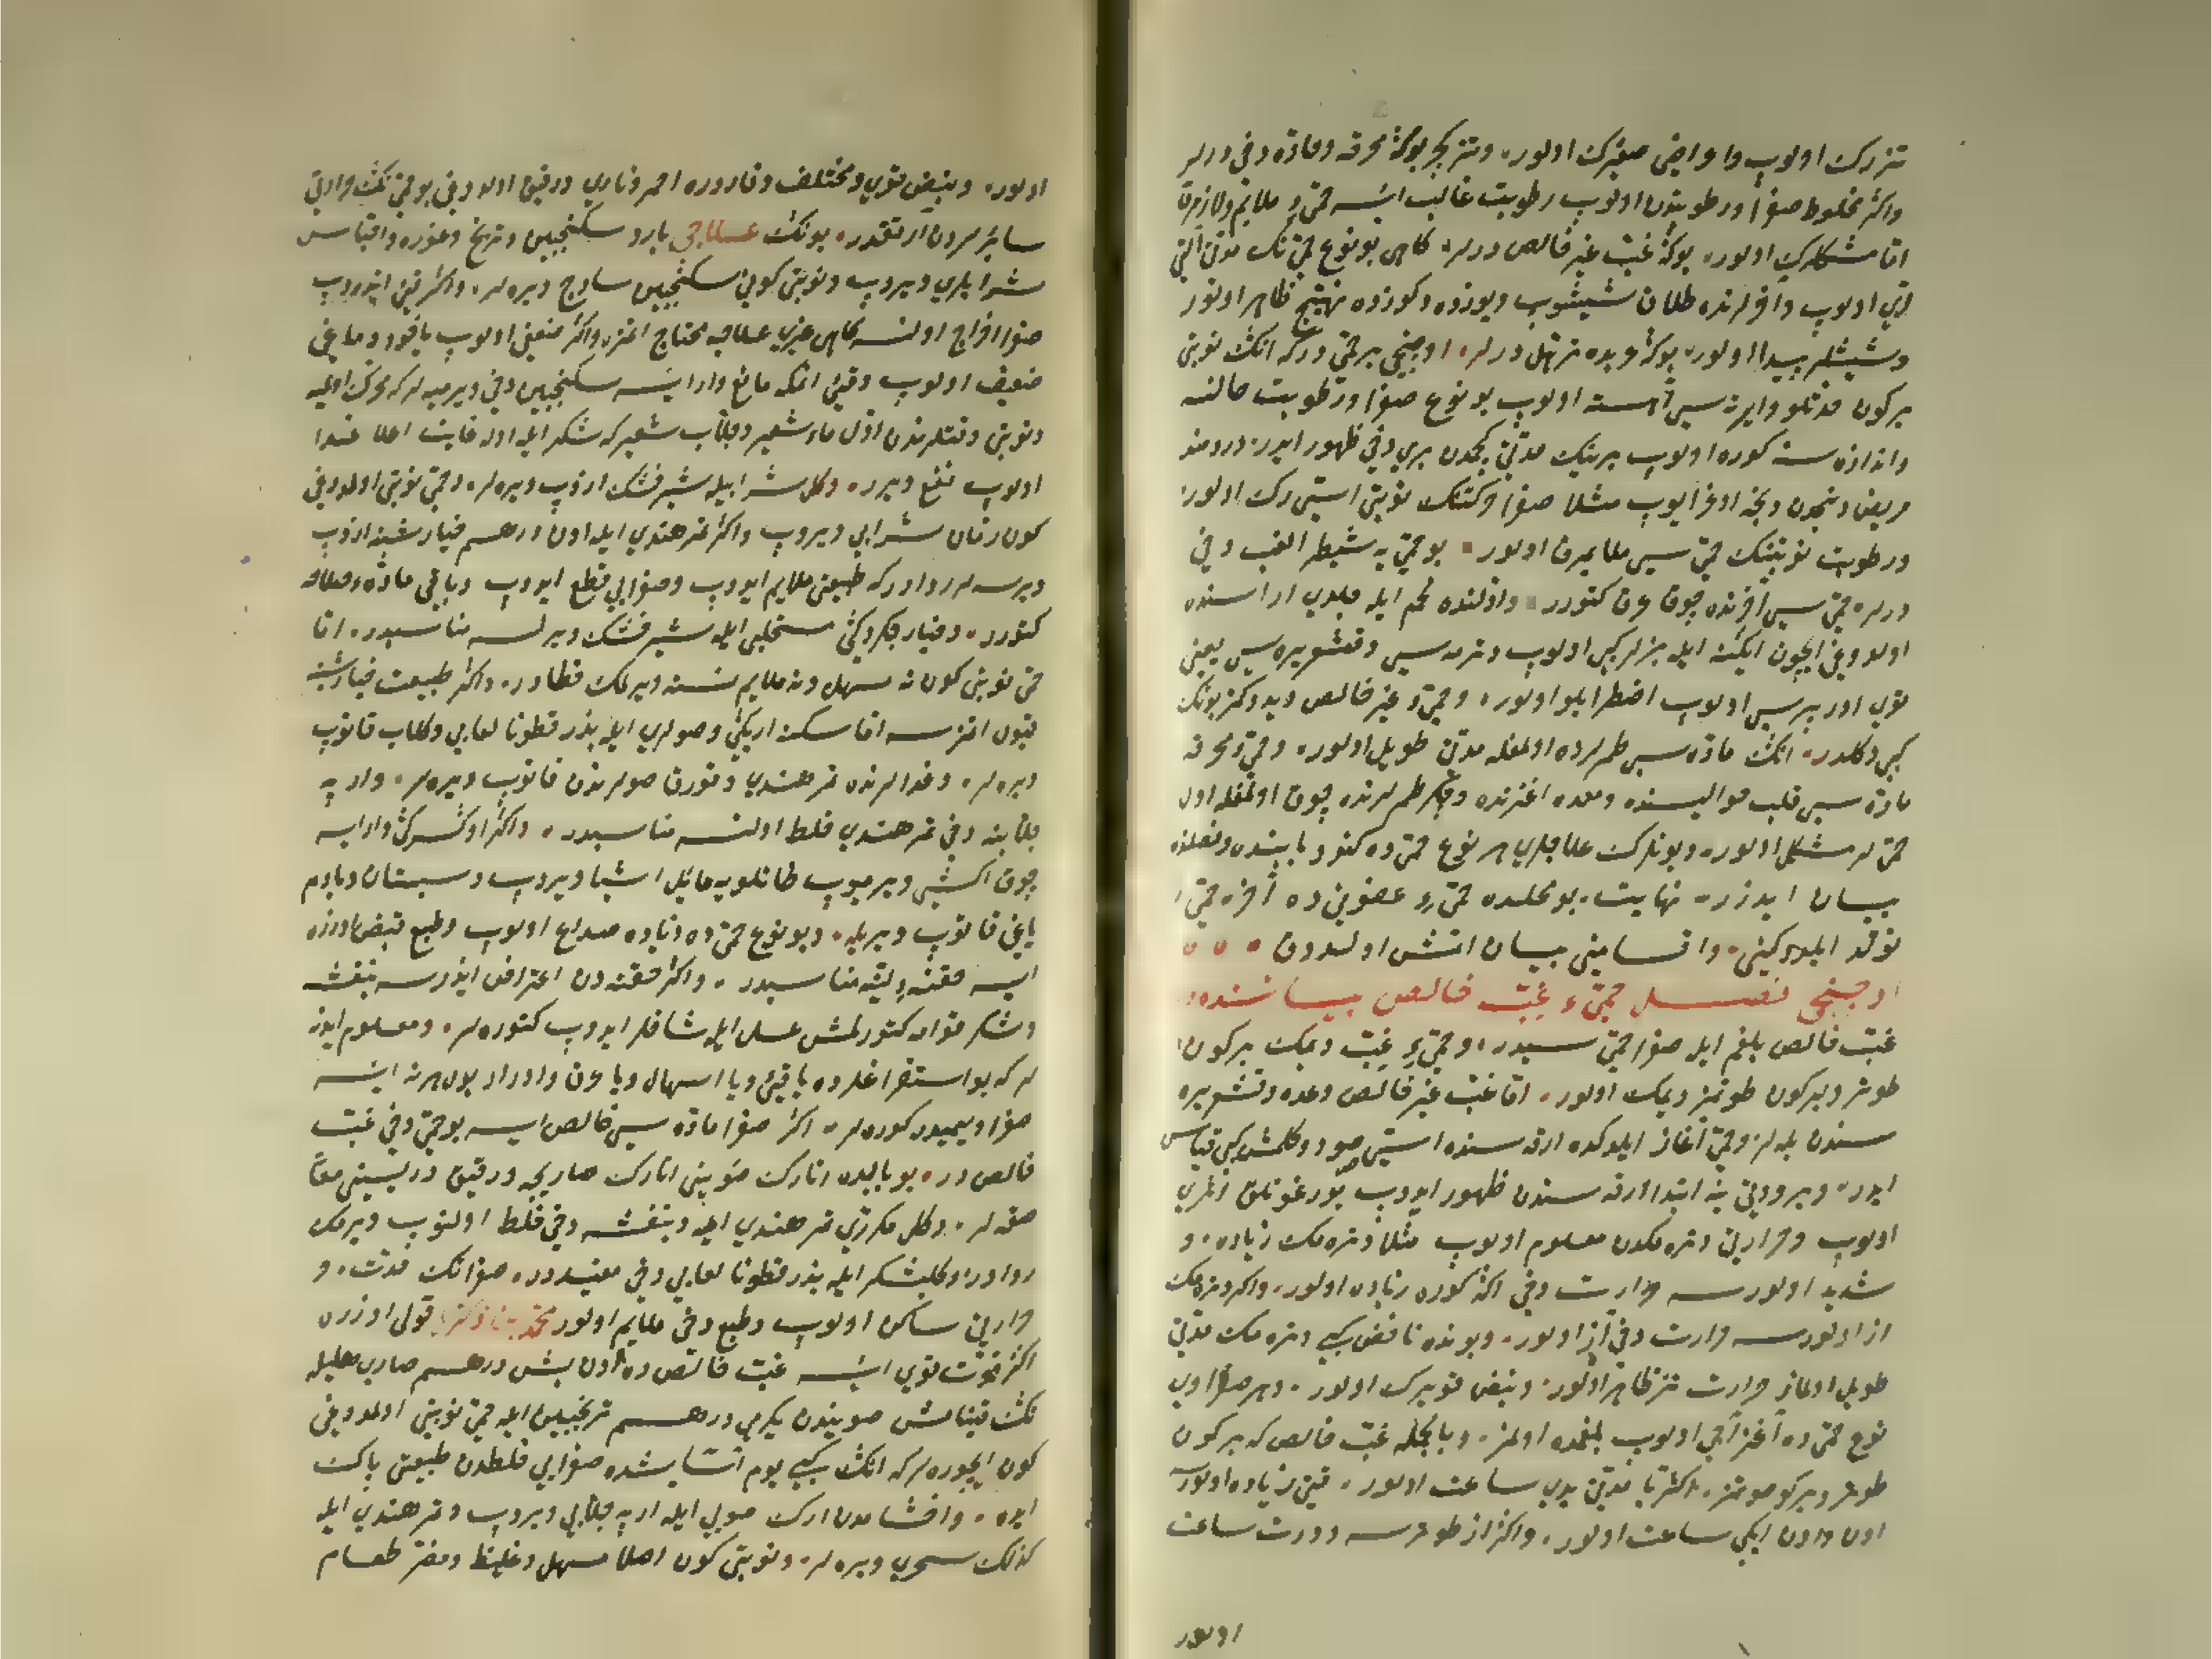 تزرك اولوب واعراضی صغیرك اولور، وتنریجر بوكا محرقه وحاده دخی دیرلر
واكر مخلوط صفرا ورطوبتدن اولوب رطوبت غالب ایسه حمی ملایم ولازم
اما مشكلرك اولور، بوكا غب غیر خالص دیرلر، كاهی بو نوع حمی نك مدتی التی
آی اولوب واخرلرنده طلاق شیشوب ویوزده وكوزده تهیج ظاهر اولور
وشیشلر پیدا اولور، اوچنجی بر حمی دركه انك نوبتی
بركون شدتلو وایرته سی آهسته اولوب بو نوع صفرا ورطوبت حالنه
واندازه سنه كوره اولوب برینك مدتی كچمدن بری دخی ظهور ایدر، دردمند
مریض اوغرایوب مثلا صفرا حركتنك نوبتی استی رك اولور
ورطوبت نوبتنك حمی سی ملایمرق اولور، بو حمی یه شطر الغب دخی
دیرلر، حمی سی آخرنده چوق عرق كتورر، واولنده لحم ایله جلدی اراسنده
اولدوغی ایچون ایكنه ایله بزلر كبی اولوب وتتره مه سی وقشعریره سی یعنی
قوی اورپرمه سی اولوب اضطرابلو اولور، وحمیء غیر خالص دیدوكمز بونك
كبی دكلدر، انك ماده سی طمرلرده اولمغله مدتی طویل اولور، وحمیء محرقه
ماده سی قلب حوالیسنده ومعده اغزنده وجكر طمرلرنده چوق اولمغله اول
حمی لر مشكل اولور، وبونلرك علاجلری هر نوع حمی ده كندو بابنده وفصلنده
بیان ایدرز، نهایت بو محلده حمیء عفونی ده آخره حمی
تولد ایلدوكینی، واقسامینی بیان اتمش اولدوق
اوچنجی فصل حمیء غب خالص بیاننده در
غب خالص بلغم ایله صفرا حمی سیدر، وحمیء غب دیمك بركون
طوتر وبركون طوتمز دیمك اولور، اما غب غیر خالص رعده وقشعریره
سندن بیله لر وحمی آغاز ایلدكده ارقه سنده استی صو دوكلمش كبی قیاس
ایدر، وبرودتی ینه ابتدا ارقه سندن ظهور ایدوب یورغونلق اثری
اولوب وحرارتی دتره مكدن معلوم اولوب مثلا دتره مك زیاده و
شدید اولورسه حرارت دخی اكا كوره زیاده اولور، واكر دتره مك
از اولورسه حرارت دخی از اولور، وبونده نافض كبی دتره مك مدتی
طویل اولماز حرارت تیز ظاهر اولور، ونبض قویرك اولور، وهر صفراوی
نوع حمی ده اغز آجی اولوب بلغمده اولمز، وبالجمله غب خالص كه بركون
طوتر وبركون طوتمز، اكثریا مدتی یدی ساعت اولور، قتی زیاده اولورسه
اون واون ایكی ساعت اولور، واكر از طوترسه دورت ساعت
اولور
اولور، ونبض قوی ومختلف وقاروره احمر وناری ورقیق اولدوغی بو حمی نك حرارتی
سائرلردن آرتقدر، بونك علاجی بارد سكنجبین
شرابلری ویروب ونوبتی كونی سكنجبین ساده ویره لر، واكر قی ایدروب
صفرا اخراج اولنسه كاهی غیری علاجه محتاج اتمز، واكر ضعیف اولوب یاخود دماغی
ضعیف اولوب وقی اتمكه مانع وار ایسه سكنجبین دخی ویرمیه لر كه محرك اولیه
ونوبتی وقتلرندن اول ماء شعیر وجلاب شعیر كه شكر ایله اوله غایت اعلا غدا
اولوب نفع ویرر، وكل شرابیله شیرخشك ازوب ویره لر، وحمی نوبتی اولدوغی
كون رمان شرابی ویروب واكر تمر هندی ایله اون درهم خیارشنبه ازوب
ویرسه لر روادر كه طبیعتی ملایم ایدوب وصفرایی قطع ایدوب وباقی ماده صلاحه
كتورر، وخیار سنجلی ایله شیرخشك ویرلسه مناسبدر، اما
حمی نوبتی كون نه مسهل ونه ملایم نسنه ویرمك خطادر، واكر طبیعت خیارشنبه
قبول اتمزسه اما سكر اریكی وصولری ایله بذر قطونا لعابی وكلاب قاتوب
ویره لر، وغدالرنده تمر هندی وقوروق صولرندن قاتوب ویره لر، وارپه
جلابنه دخی تمر هندی خلط اولنسه مناسبدر، واكر اوكسرك وار ایسه
چوق اكشی ویرمیوب طاتلویه مائل اشیا ویروب وسپستان وبادم
یاغی قاتوب ویریله، وبو نوع حمی ده زیاده صداع اولوب وطبع قبض اوزره
ایسه حقنهء لینه مناسبدر، واكر حقنه دن اعتراض ایدرسه بنفشه
وشكر قوامه كتورلمش عسل ایله شافلر ایدوب كتوره لر، ومعلوم ایدنه
لر كه بو استفراغلرده یا قیء ویا اسهال ویا عرق وادرار بول هر نه ایسه
صفراویمیدر كوره لر، اكر صفرا ماده سی خالص ایسه بو حمی دخی غب
خالص در، بو بابده انارك صوینی انارك صاریجه ورقیق دریسینی معا
صقه لر، وكل مكرری تمر هندی ایله وبنفشه دخی خلط اولنوب ویرمك
روادر وكلبشكر ایله بذر قطونا لعابی دخی مفیددر، صفرانك شدت و
حرارتی ساكن اولوب وطبع دخی ملایم اولور محمد بن زكریا قولی اوزره
اكر قوت قوی ایسه غب خالص ده اون بش درهم صاری هلیله
نك قینامش صویندن یكرمی درهم ترنجبین ایله حمی نوبتی اولمدوغی
كون ایچوره لر كه انك كبی یوم صفرایی خلطدن طبیعتی پاك
ایده، واخشامدن ارك صویی ایله ارپه جلابی ویروب وتمر هندی ایله
كذلك سحری ویره لر، ونوبتی كون اصلا مسهل وغلیظ ومضر طعام